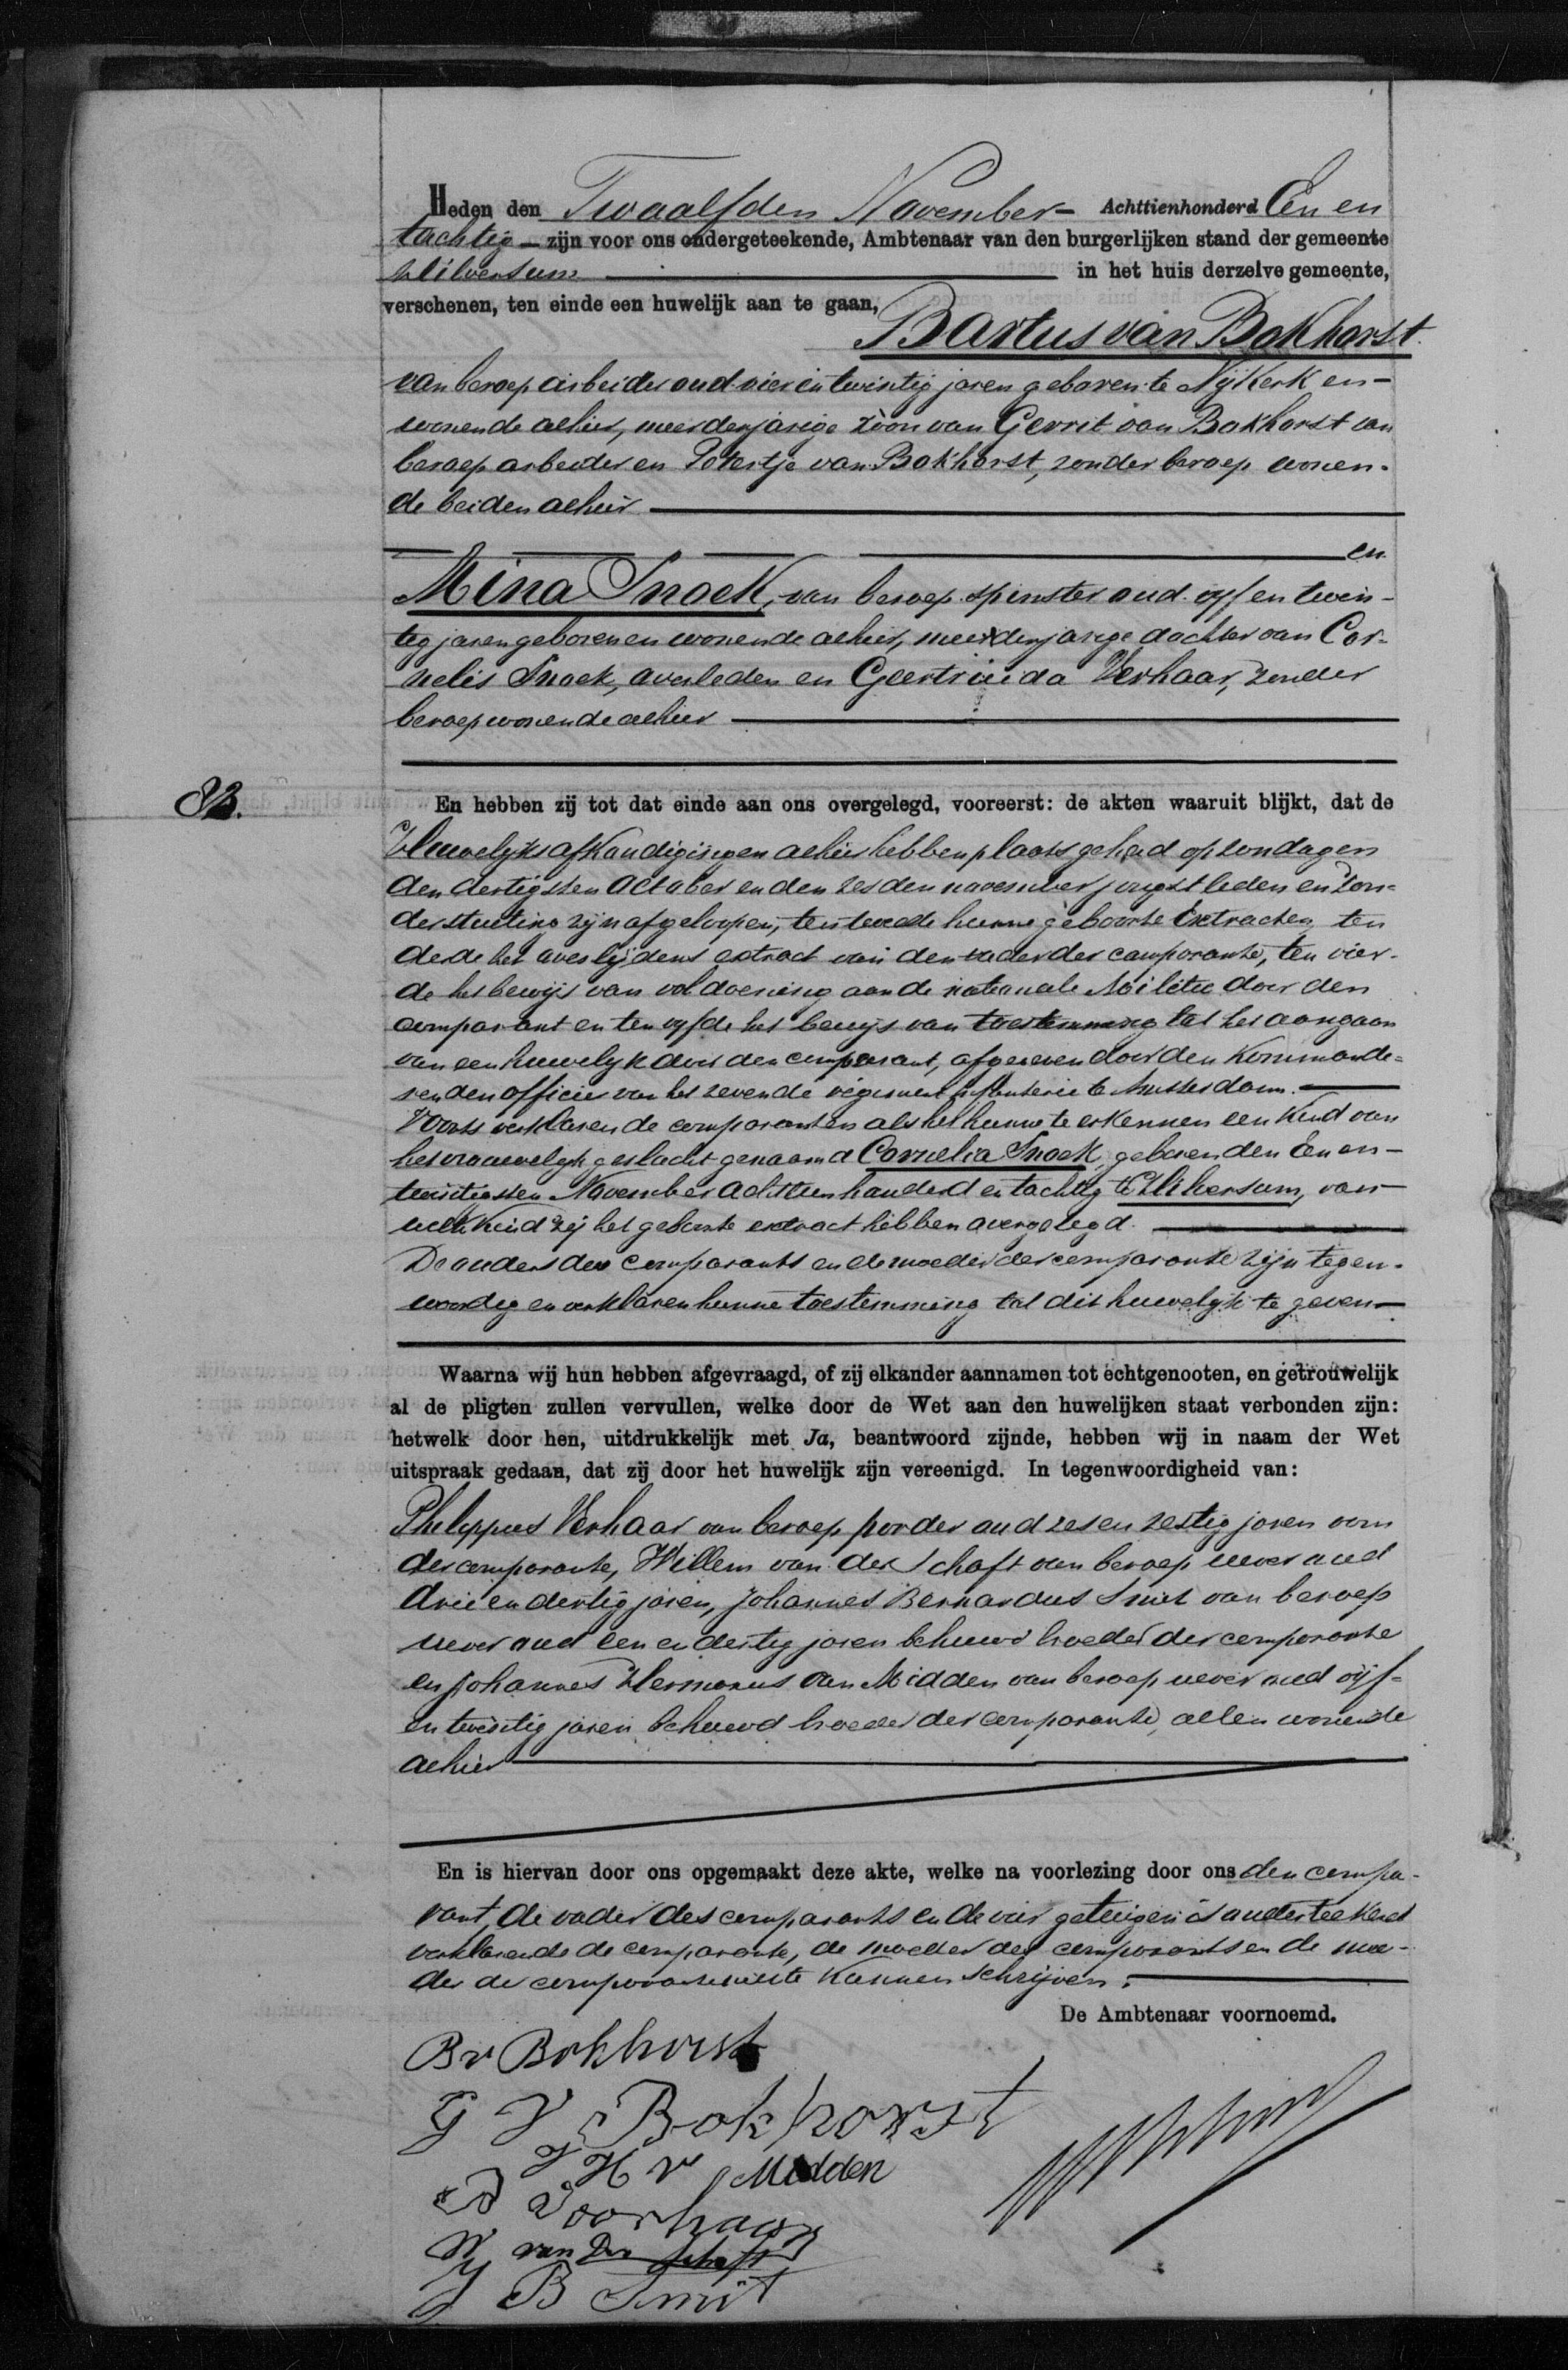 Heden den Twaalfden November - Achttienhonderd Een en
tachtig - zijn voor ons ondergeteekende, Ambtenaar van den burgerlijken stand der gemeente
Hilversum in het huis derzelve gemeente,
verschenen, ten einde een huwelijk aan te gaan,
Bartus van Bokhorst.
van beroep arbeider oud vier en twintig jaren geboren te Nijkerk en -
wonende alhier, meerderjarige zoon van Gerrit van Bokhorst van
beroep arbeider en Petertje van Bokhorst, zonder beroep wonen-
de beiden alhier
en
Mina Snoek, van beroep spinster oud vyf en twin-
tig jaren geboren en wonende alhier, meerderjarige dochter van Cor-
nelis Snoek, overleden en Geertruida Verhaar, zonder
beroep wonende alhier
82.
En hebben zij tot dat einde aan ons overgelegd, vooreerst: de akten waaruit blijkt, dat de
Huwelyks afkondigingen alhier hebben plaats gehad op zondagen
den dertigsten October en den zesden november jongstleden en zon-
der stuiting zyn afgeloopen, ten tweede hunne geboorte Extracten, ten
derde het overlydens extract van den vader der comparante, ten vier-
de het bewys van voldoening aan de nationale Militie door den
comparant en ten vyfde het bewys van toestemming tot het aangaan
van een huwelyk door den comparant, afgegeven door den Kommande-
renden officier van het zevende regiment infanterie te Amsterdam.
Voorts verklaren de comparanten als het hunne te erkennen een Kind van
het vrouwelyk geslacht genaamd Cornelia Snoek, geboren den Een en -
twintigsten November achttienhonderd en tachtig te Hilversum, van
welk Kind zij het geboorte extract hebben overgelegd.
De ouders des comparants en de moeder der comparante zijn tegen-
woordig en verklaren hunne toestemming tot dit huwelyk te geven
Waarna wij hun hebben afgevraagd, of zij elkander aannamen tot echtgenooten, en getrouwelijk
al de pligten zullen vervullen, welke door de Wet aan den huwelijken staat verbonden zijn:
hetwelk door hen, uitdrukkelijk met Ja, beantwoord zijnde, hebben wij in naam der Wet
uitspraak gedaan, dat zij door het huwelijk zijn vereenigd. In tegenwoordigheid van:
Philippus Verhaar van beroep porder oud zes en zestig jaren oom
der comparante, Willem van der Schaft van beroep wever oud
drie en dertig jaren, Johannes Bernardus Smit van beroep
wever oud een en dertig jaren behuwd broeder der comparante
en Johannes Hermanus van Midden van beroep wever oud vijf-
en twintig jaren behuwd broeder der comparante, allen wonende
alhier
En is hiervan door ons opgemaakt deze akte, welke na voorlezing door ons den compa-
rant, de vader des comparants en de vier getuigen is onderteekend
verklarende de comparante, de moeder des comparants en de moe-
der der comparante niet te Kunnen Schrijven.
De Ambtenaar voornoemd.
B v Bokhorst
G V Bokhorst
J H v Midden
Voorhaar
W van Der Schaft
J B Smit